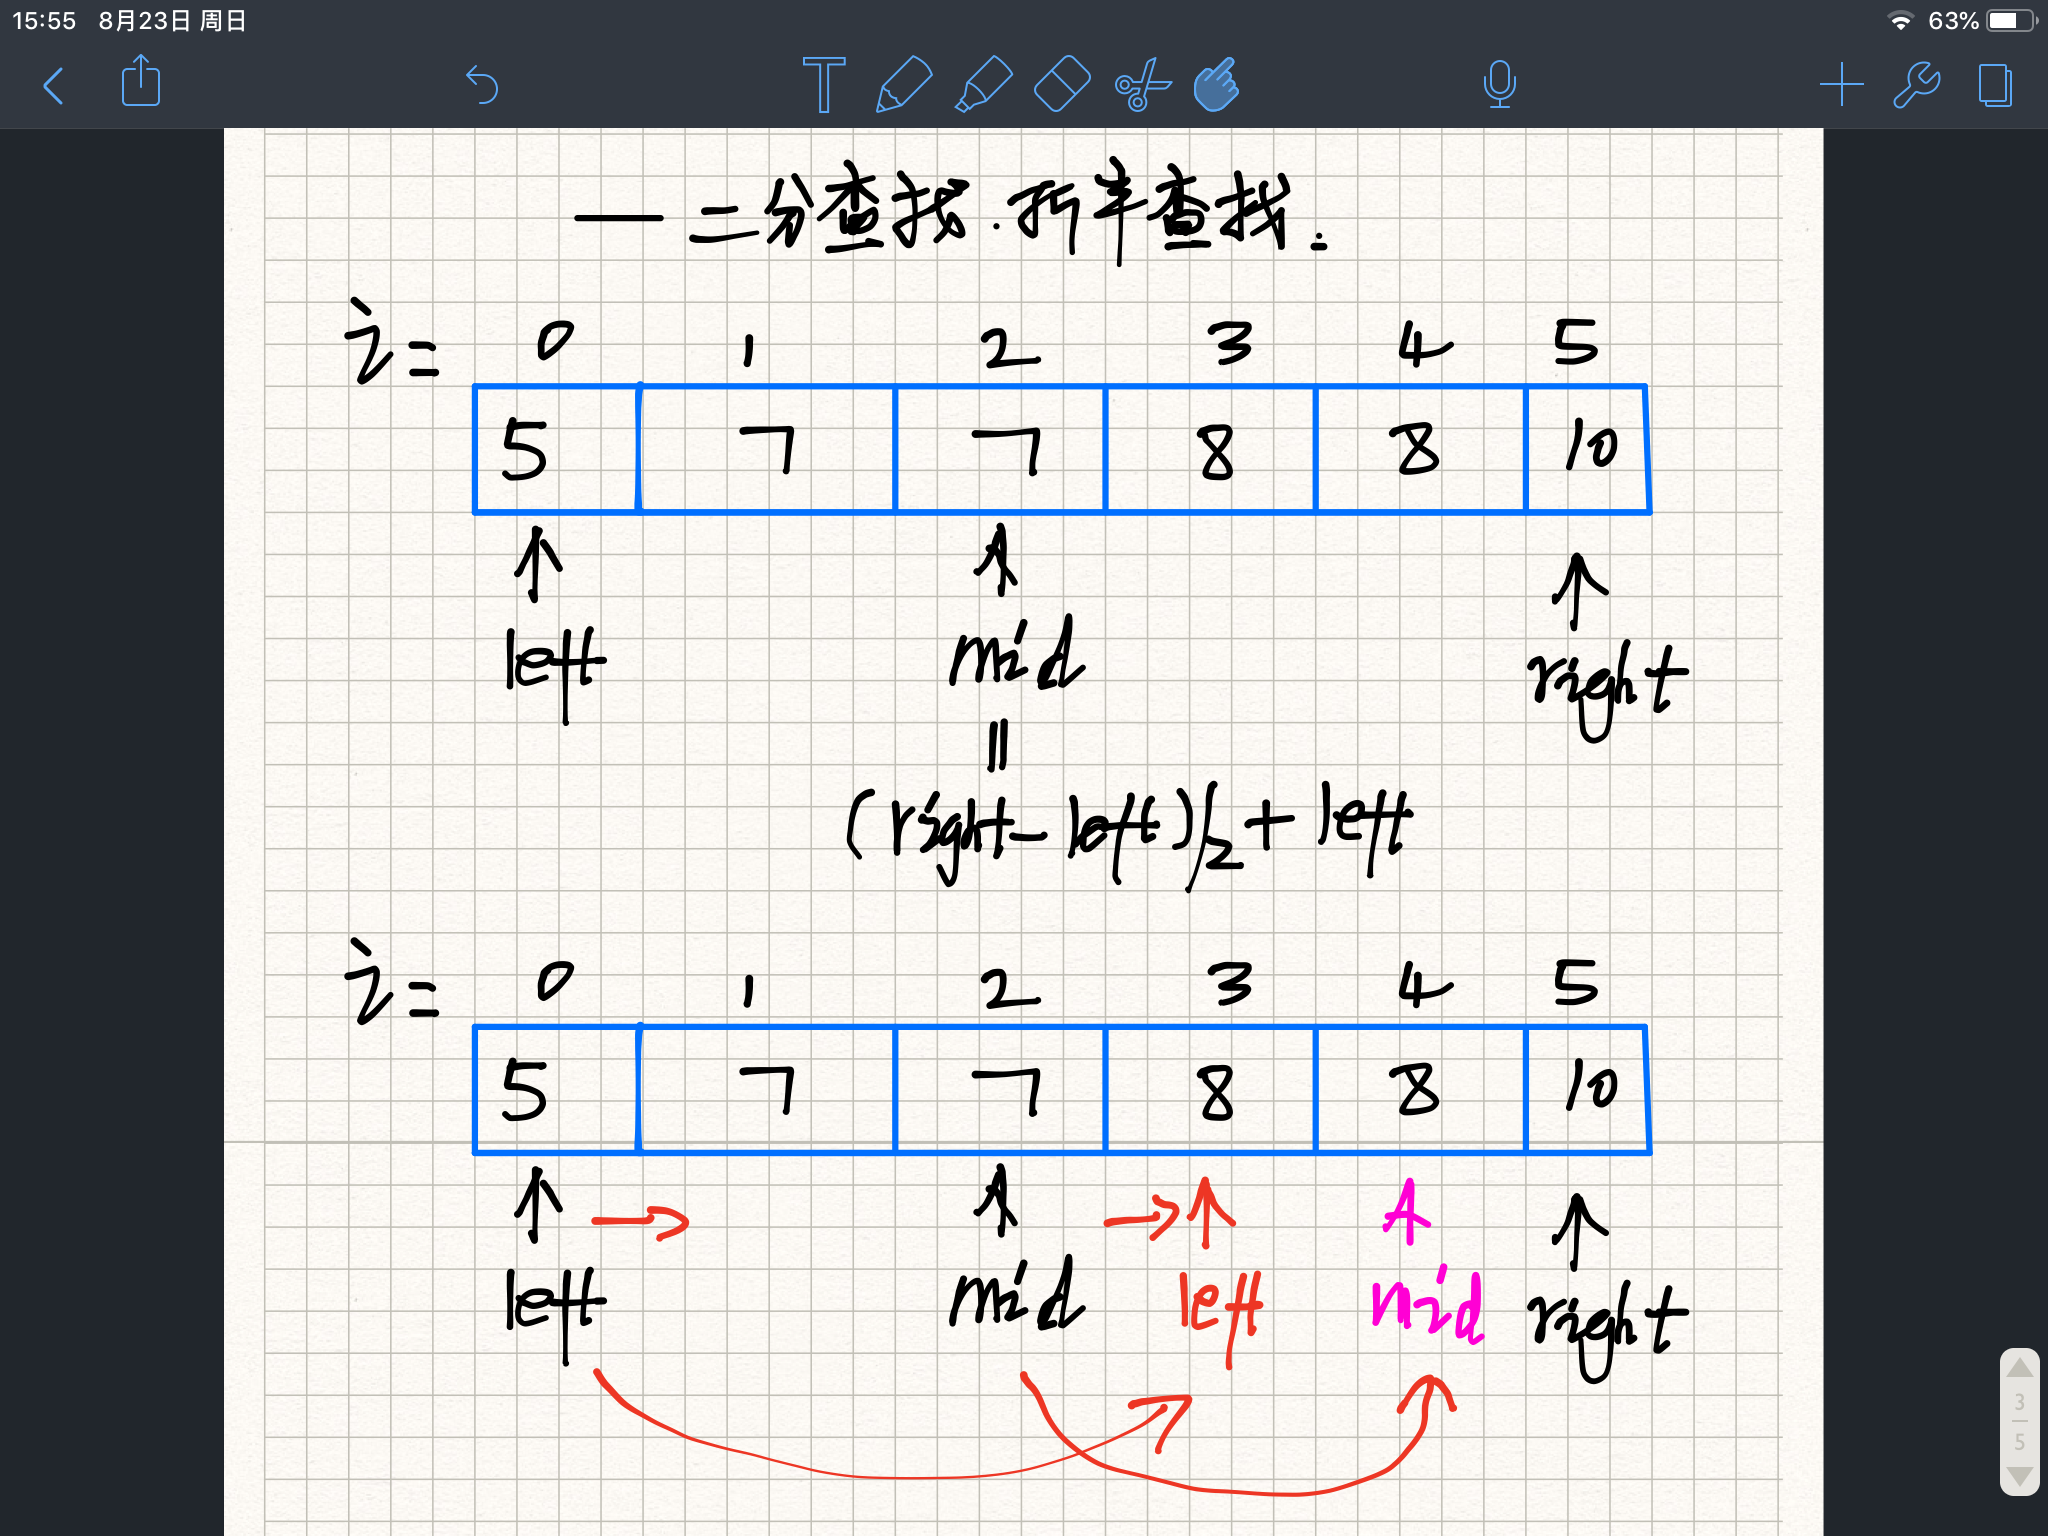 15:55 8月23日 周日 63%
T
一 二分查找.折半查找:
i= 0 1 2 3 4 5
5 7 7 8 8 10
left mid right
=
(right-left)/2+left
i= 0 1 2 3 4 5
5 7 7 8 8 10
left mid left mid right
3
5